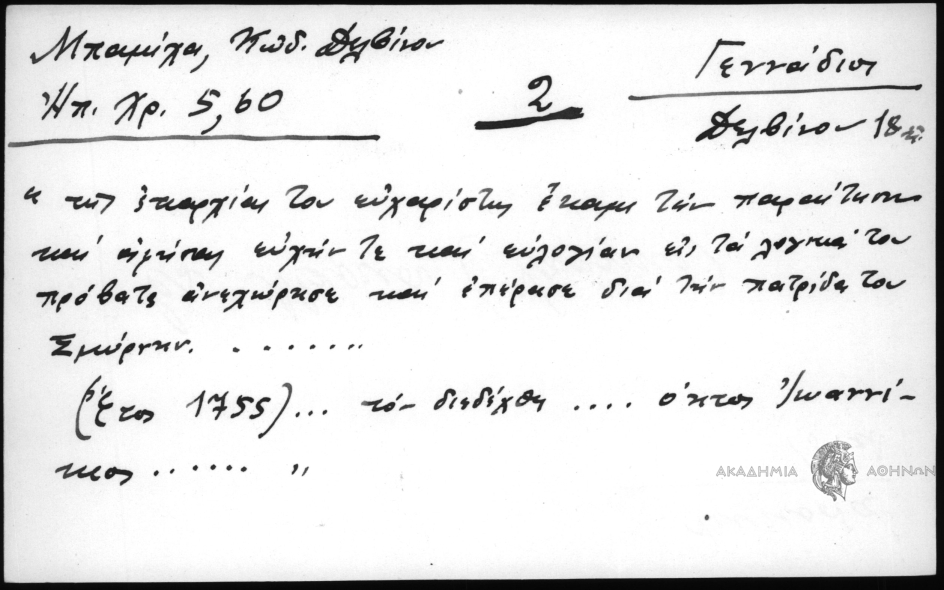 Μπαμίχα, Κώδ. Δελβίνου
Ἠπ. Χρ. 5,60
2
Γεννάδιος
Δελβίνου 18
"τῆς ἐπαρχίας του εὐχαρίστως ἔκαμε τὴν παραίτησιν
καὶ ἀφήσας εὐχήν τε καὶ εὐλογίαν εἰς τὰ λογικά του
πρόβατα ἀνεχώρησε καὶ ἐπέρασε διὰ τὴν πατρίδα του
Σμύρνην. . . . . . . "
(ἔτος 1755)... τὸν διεδέχθη .... ὁ κτος Ἰωαννί-
κιος ...... "
ΑΚΑΔΗΜΙΑ ΑΘΗΝΩΝ